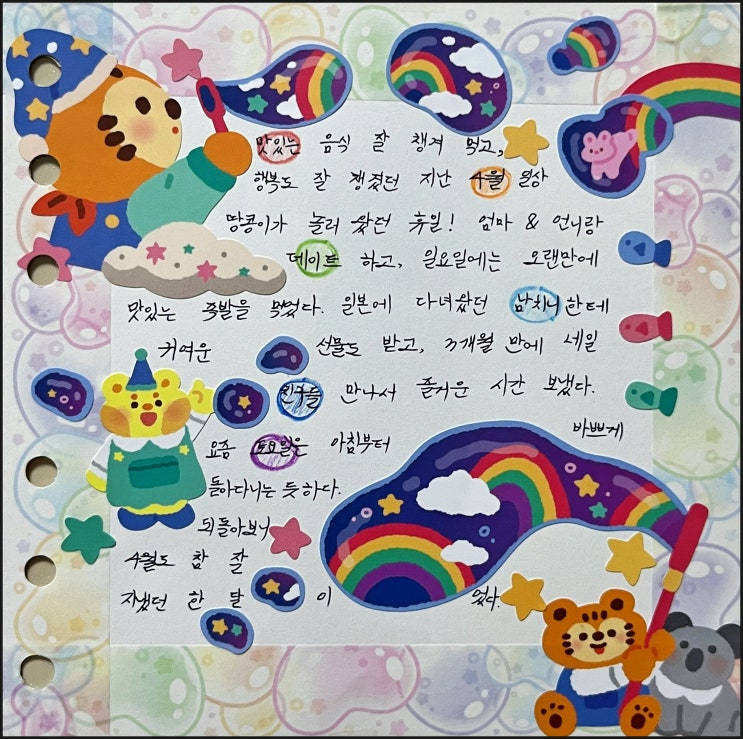 맛있는 음식 잘 챙겨 먹고,
행복도 잘 챙겼던 지난 4월 일상
땅콩이가 놀러 왔던 휴일! 엄마 & 언니랑
데이트 하고, 일요일에는 오랜만에
맛있는 족발을 먹었다. 일본에 다녀왔던 남치니한테
귀여운 선물도 받고, 3개월 만에 세일
친구들 만나서 즐거운 시간 보냈다.
요즘 토요일은 아침부터 바쁘게
돌아다니는 듯하다.
되돌아보니
4월도 참 잘
지냈던 한 달 이 었다.